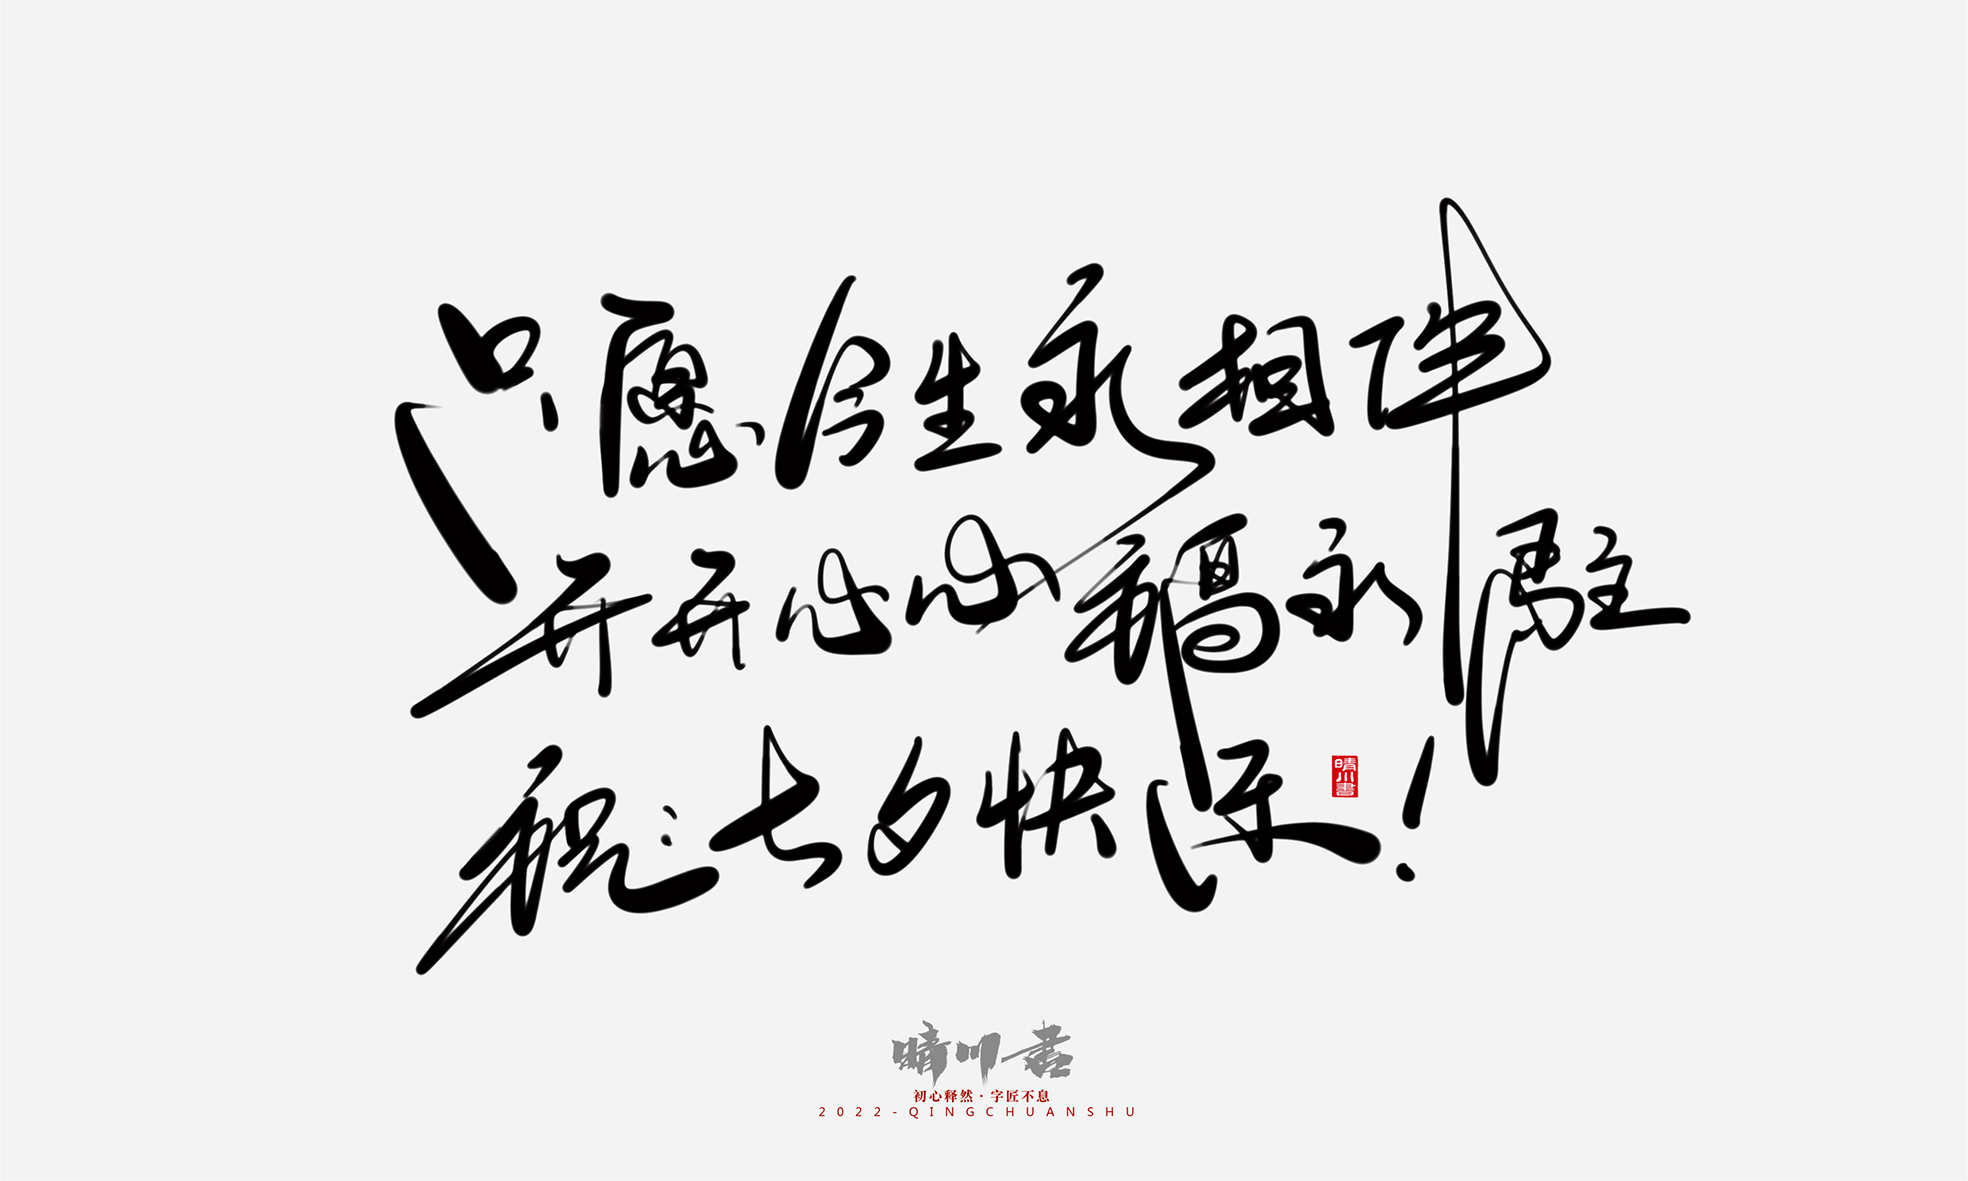 只愿今生永相伴
开开心心福永驻
祝:七夕快乐!
晴川書
晴川書
初心释然·字匠不息
2022-QINGCHUANSHU